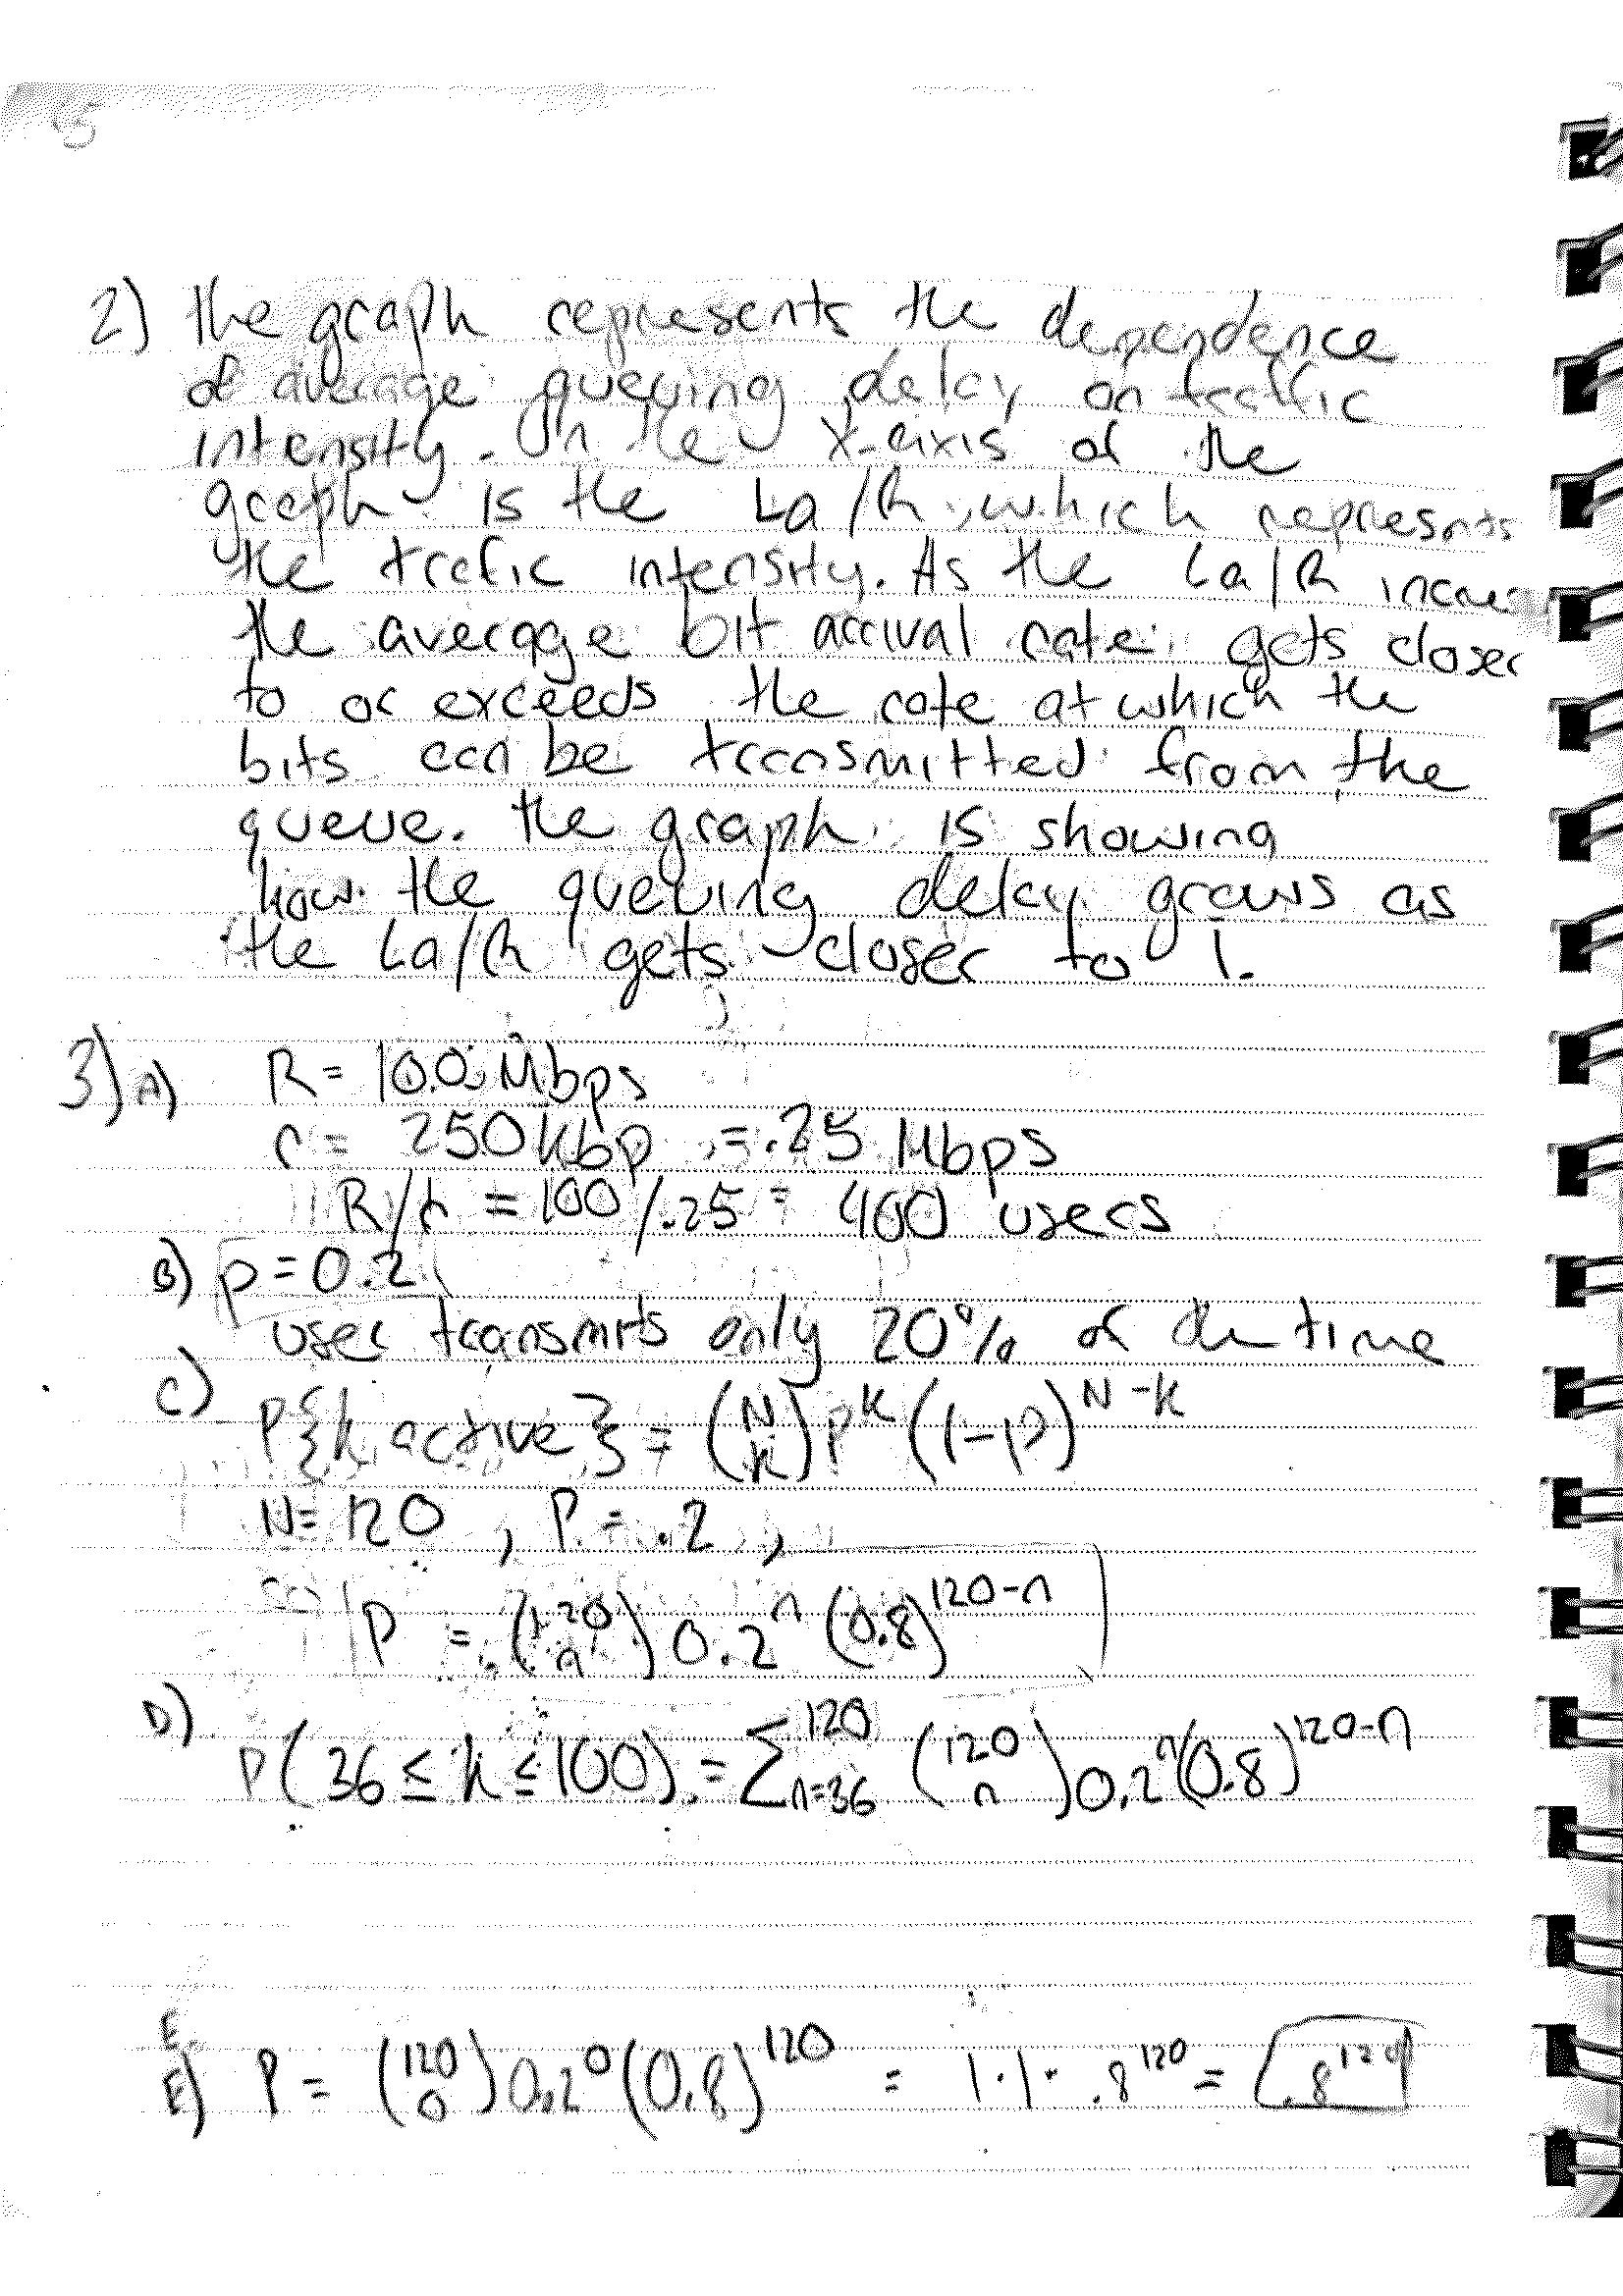 2) The graph represents the dependence
of average queuing delay on traffic
intensity. On the X-axis of the
graph is the La/R, which represnts
the trafic intensity. As the La/R
the average bit arrival rate gets closer
to or exceeds the rate at which the
bits can be transmitted from the
queue. The graph is showing
how the queuing delay grows as
the La/R gets closer to 1.
3) A) R = 100 Mbps
r = 250 kbp = .25 Mbps
R/r = 100/.25 = 400 users
B) p = 0.2
user transmits only 20% of the time
C)
P{k active} = (N k) P^k (1-p)^N-k
N = 120, P = .2,
P = (120 n) 0.2^n (0.8)^120-n
D)
P(36 ≤ k ≤ 100) = Σ^120 n=36 (120 n) 0.2^n (0.8)^120-n
E
E) P = (120 0) 0.2^0 (0.8)^120 = 1·1· .8^120 = .8^120